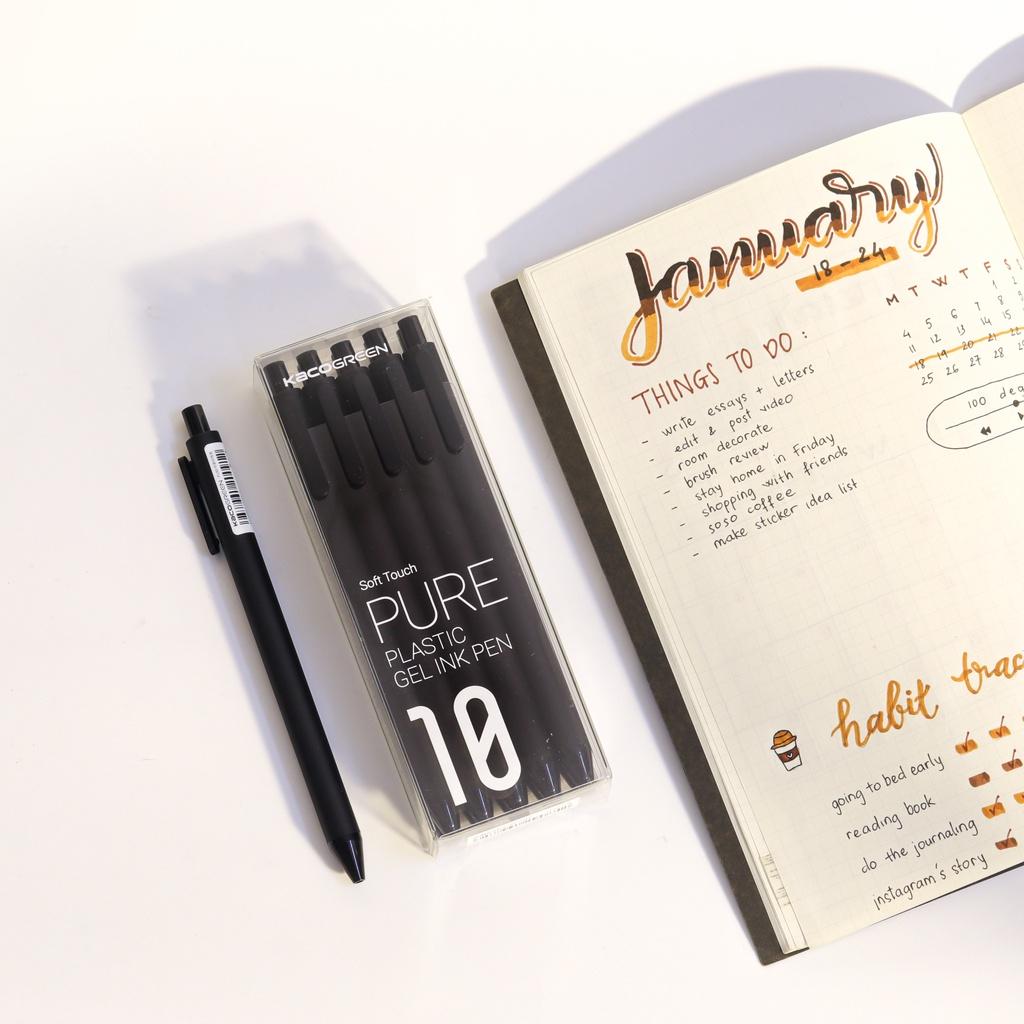 KACOGREEN
KACOGREEN
Soft Touch
PURE
PLASTIC
GEL INK PEN
10
January
18-24
THINGS TO DO :
- write essays + letters
- edit & post video
- room decorate
- brush review
- stay home in Friday
- shopping with friends
- soso coffee
- make sticker idea list
M T W T F S
1 2
4 5 6 7 8 9
11 12 13 14 15
18 19 20 21 22
25 26 27 28
100 deg
habit trac
going to bed early
reading book
do the journaling
instagram's story